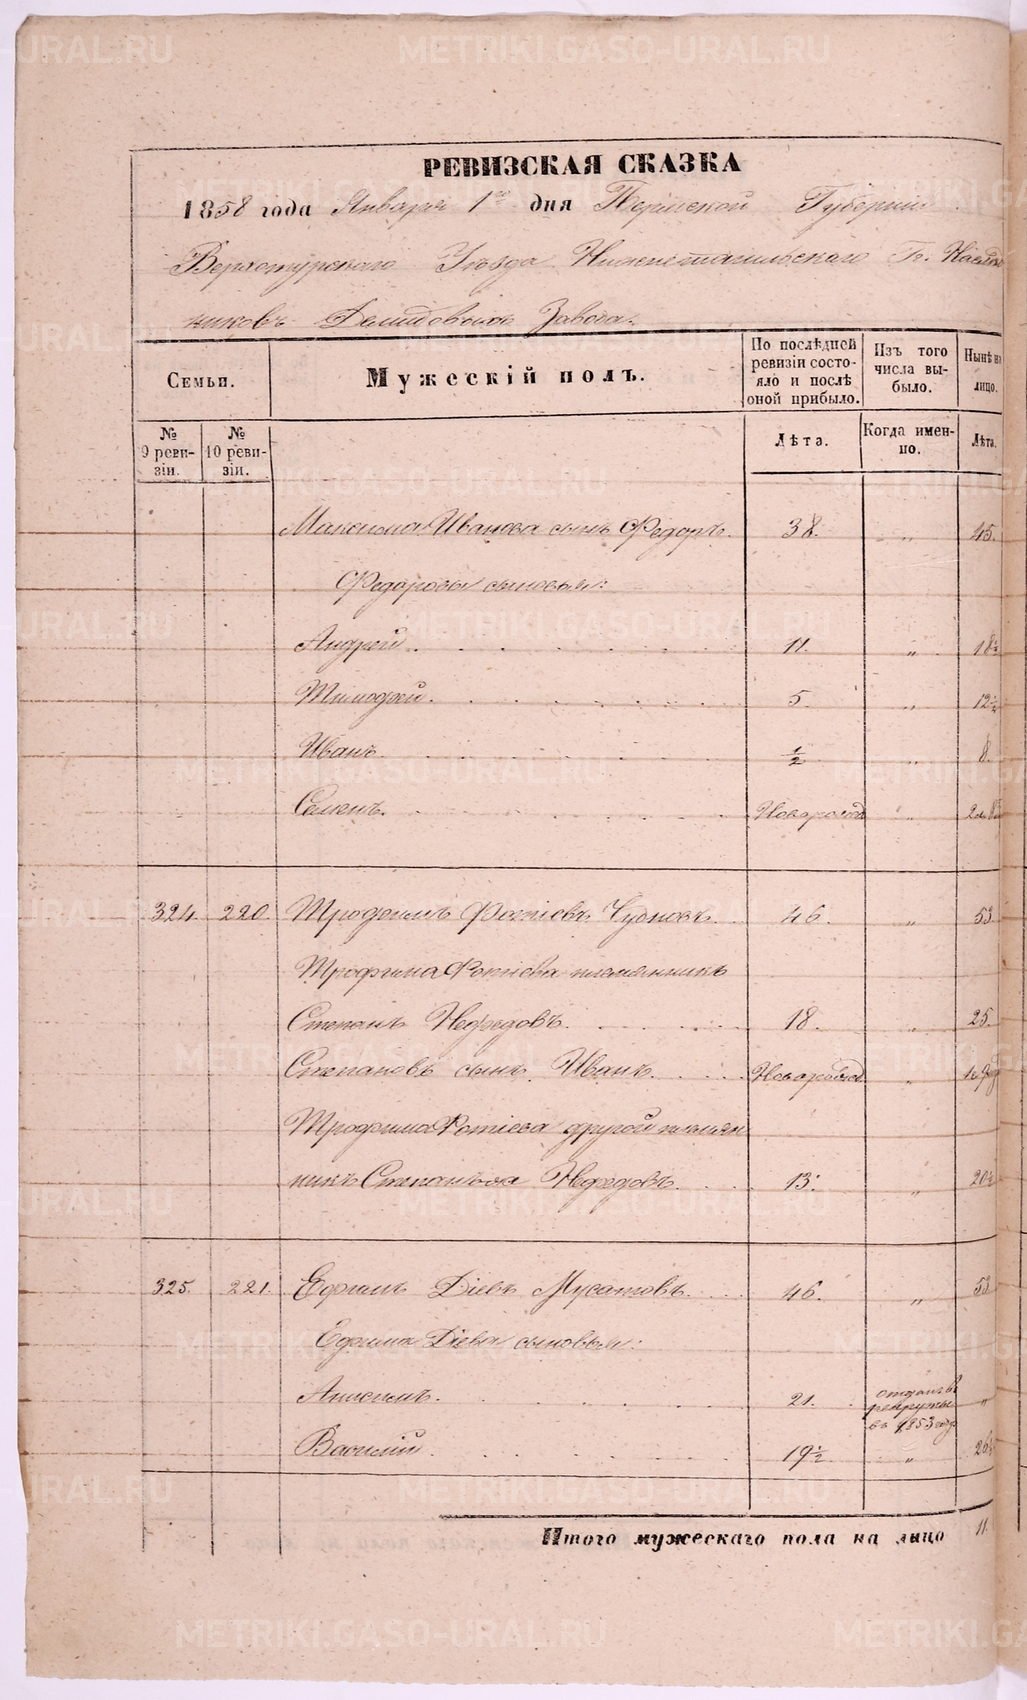 РЕВИЗСКАЯ СКАЗКА
1858 года Января 1го дня Пермской Губернии
Верхотурскаго Уѣзда Нижнетагильскаго Гг. Наслѣд
никовъ Демидовыхъ Завода.
Семьи.
№ 9 ревизіи.
№ 10 ревизіи.
Мужескій полъ.
По послѣдней
ревизіи состо-
яло и послѣ
оной прибыло.
Лѣта.
Изъ того
числа вы-
было.
Когда имен-
но.
Нынѣ на
лицо.
Лѣта.
Максима Иванова сынъ Федоръ. 38. " 45.
Федоровы сыновья:
Андрей 11. " 18½
Тимофей. 5. " 12½
Иванъ ½ " 8.
Семенъ. Новорожд "
324. 220. Трофимъ Фотіевъ Чудновъ. 46. " 53
Трофима Фотіева племянникъ
Степанъ Нефедовъ. 18. " 25.
Степановъ сынъ Иванъ. Новорожд "
Трофима Фотіева другой племян
никъ Степанъ Нефедовъ. 13. " 20½
325. 221. Ефимъ Діевъ Мусатовъ. 46. " 53
Ефима Діева сыновья:
Анисимъ. 21. отданъ въ рекруты въ 1853 году "
Василій. 19½ " 26½
Итого мужескаго пола на лицо 11.
METRIKI.GASO-URAL.RU